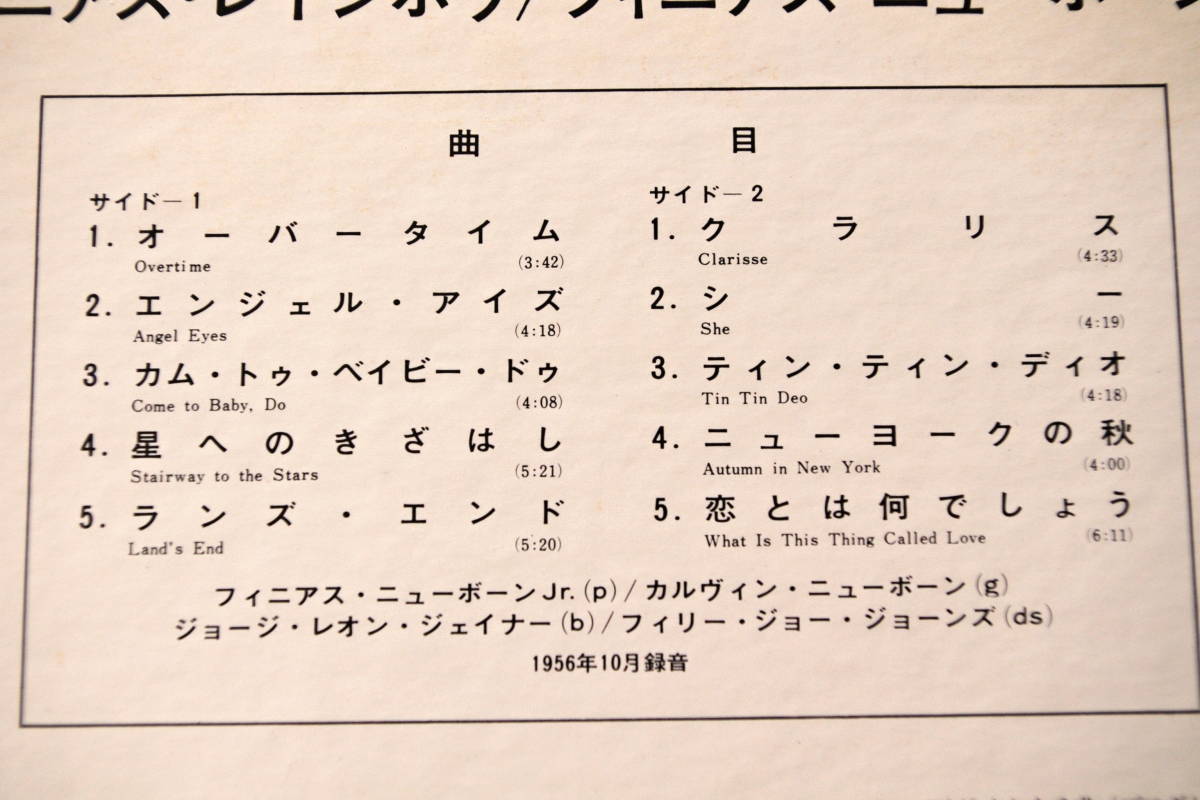 ニアス・レインボウ/フィニアス・ニューボーン
曲 目
サイド—1
1. オーバータイム
Overtime (3:42)
2. エンジェル・アイズ
Angel Eyes (4:18)
3. カム・トゥ・ベイビー・ドゥ
Come to Baby, Do (4:08)
4. 星へのきざはし
Stairway to the Stars (5:21)
5. ランズ・エンド
Land's End (5:20)
サイド—2
1. クラリス
Clarisse (4:33)
2. シー
She (4:19)
3. ティン・ティン・ディオ
Tin Tin Deo (4:18)
4. ニューヨークの秋
Autumn in New York (4:00)
5. 恋とは何でしょう
What Is This Thing Called Love (6:11)
フィニアス・ニューボーンJr.(p)/カルヴィン・ニューボーン(g)
ジョージ・レオン・ジェイナー(b)/フィリー・ジョー・ジョーンズ(ds)
1956年10月録音